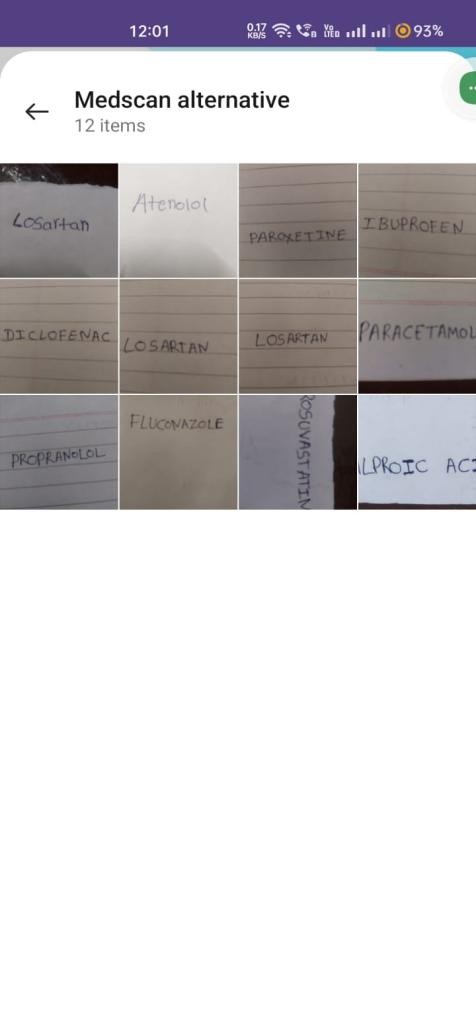 12:01 0.17 KB/S Vo LTED 93%
Medscan alternative
12 items
Losartan
Atenolol
PAROXETINE
IBUPROFEN
DICLOFENAC
LOSARTAN
LOSARTAN
PARACETAMOL
PROPRANOLOL
FLUCONAZOLE
ROSUVASTATIN
LPROIC AC